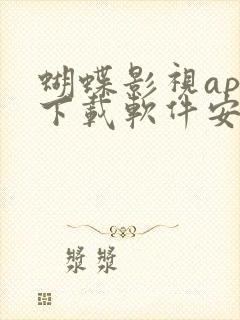 蝴蝶影視ap
下載軟件安
漿漿